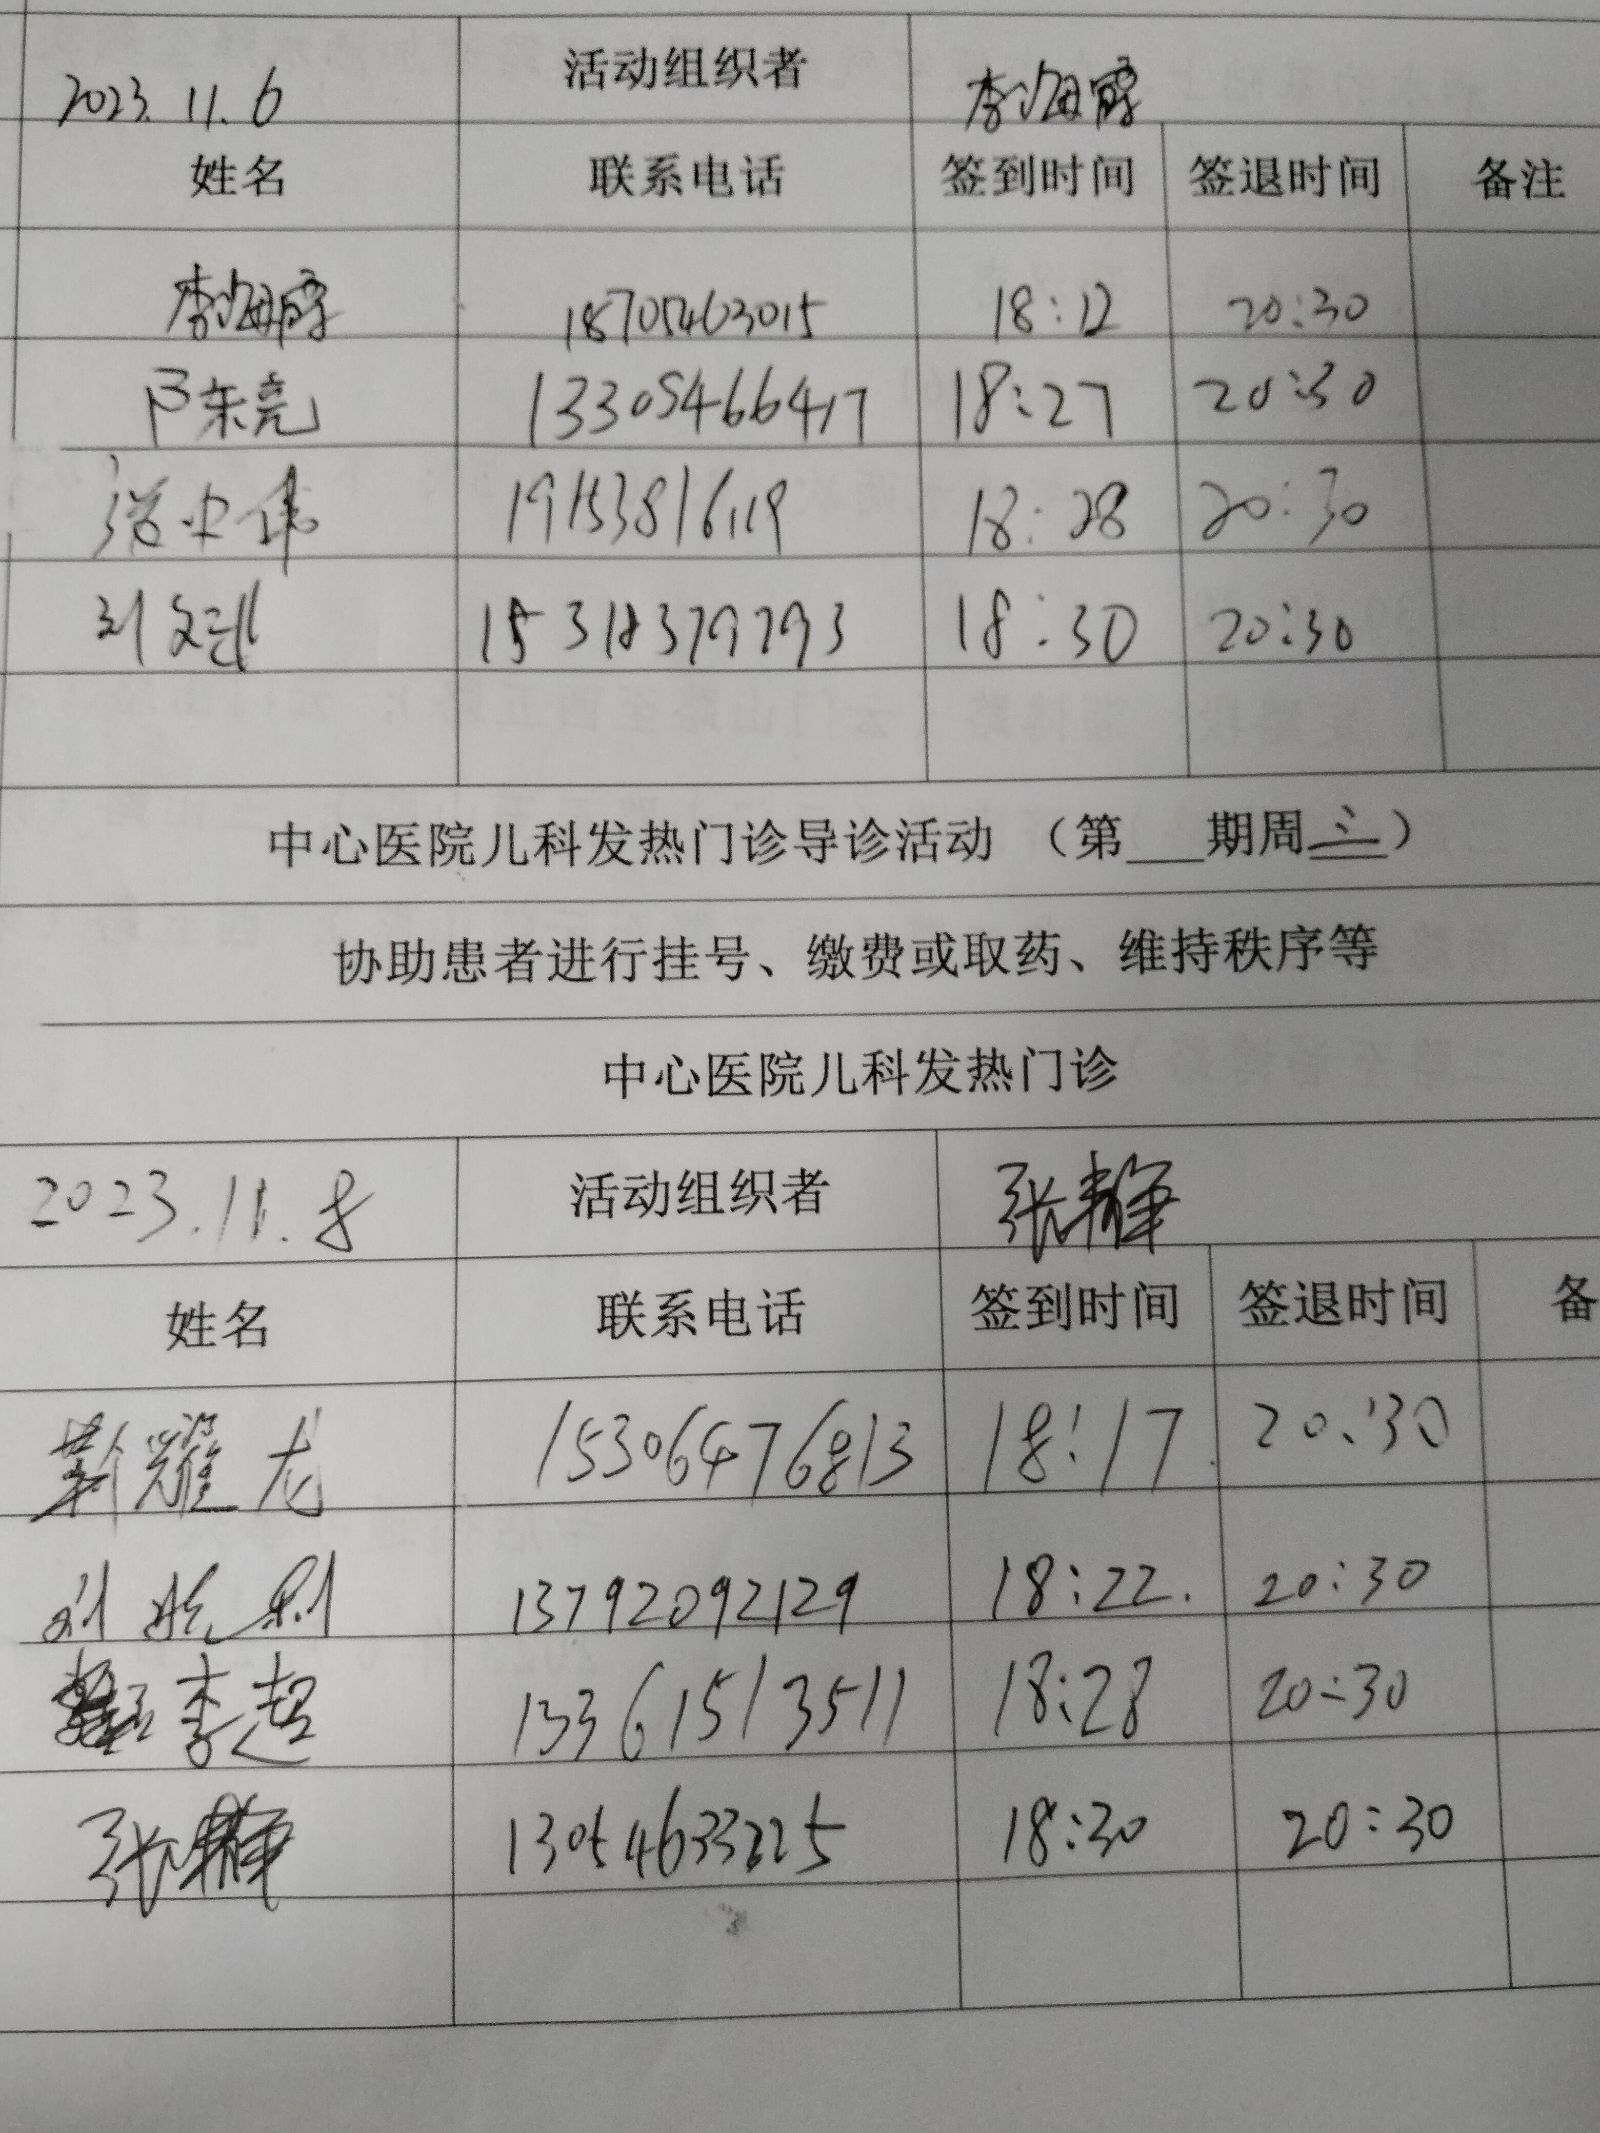 2023.11.6 活动组织者 李海霞
姓名 联系电话 签到时间 签退时间 备注
李海霞 18705463015 18:12 20:30
陈东亮 13305466417 18:27 20:30
19153816119 18:28 20:30
刘文 15318379793 18:30 20:30
中心医院儿科发热门诊导诊活动 （第___期周三）
协助患者进行挂号、缴费或取药、维持秩序等
中心医院儿科发热门诊
2023.11.8 活动组织者 张静
姓名 联系电话 签到时间 签退时间 备
靳耀龙 15306476813 18:17 20:30
刘 13792092129 18:22. 20:30
李超 13361513511 18:28 20:30
张静 13054633225 18:30 20:30